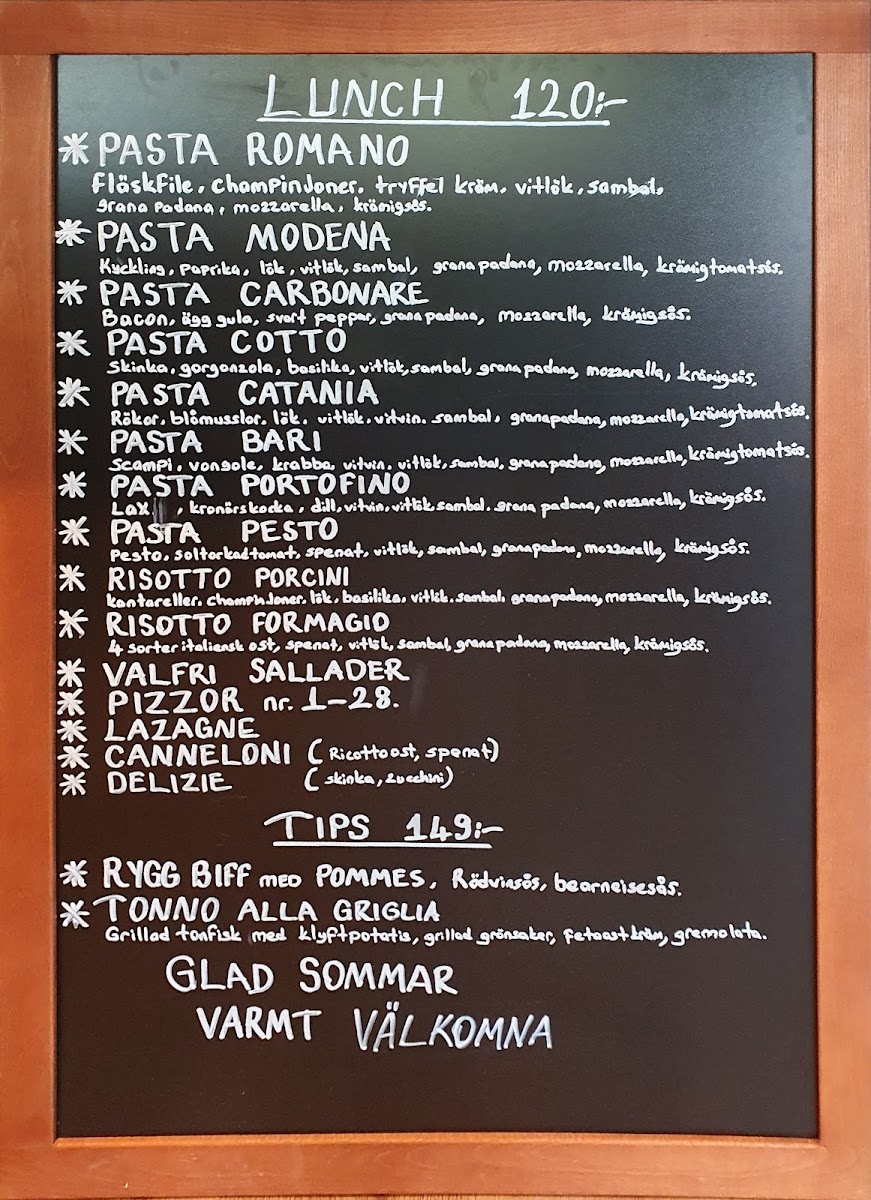 LUNCH 120:-
* PASTA ROMANO
Fläskfile, ChampinJoner, tryffel kräm, vitlök, sambal,
grana Padana, mozzarella, krämigsös.
* PASTA MODENA
Kyckling, Paprika, lök, vitlök, sambal, grana padana, mozzarella, krämigtomatsös.
* PASTA CARBONARE
Bacon, ägg gula, svart peppar, grana padana, mozzarella, krämigsös.
* PASTA COTTO
Skinka, gorgonzola, basilika, vitlök, sambal, grana padana, mozzarella, krämigsös.
* PASTA CATANIA
Räkor, blåmusslor, lök, vitlök, vitvin, sambal, grana padana, mozzarella, krämigtomatsös.
* PASTA BARI
Scampi, vongole, krabba, vitvin, vitlök, sambal, grana padana, mozzarella, krämigtomatsös.
* PASTA PORTOFINO
Lax, kronärskocka, dill, vitvin, vitlök, sambal, grana padana, mozzarella, krämigsös.
* PASTA PESTO
Pesto, soltorkadtomat, spenat, vitlök, sambal, grana padana, mozzarella, krämigsös.
* RISOTTO PORCINI
kantareller, ChampinJoner, lök, basilika, vitlök, sambal, grana padana, mozzarella, krämigsös.
* RISOTTO FORMAGIO
4 sorter italiensk ost, spenat, vitlök, sambal, grana padana, mozzarella, krämigsös.
* VALFRI SALLADER
* PIZZOR nr. 1-28.
* LAZAGNE
* CANNELONI (Ricotta ost, spenat)
* DELIZIE (skinka, zucchini)
TIPS 149:-
* RYGG BIFF MED POMMES, Rödvinsös, bearneisesås.
* TONNO ALLA GRIGLIA
Grillad tonfisk med klyftpotatis, grillad grönsaker, fetaost kräm, gremolata.
GLAD SOMMAR
VARMT VÄLKOMNA